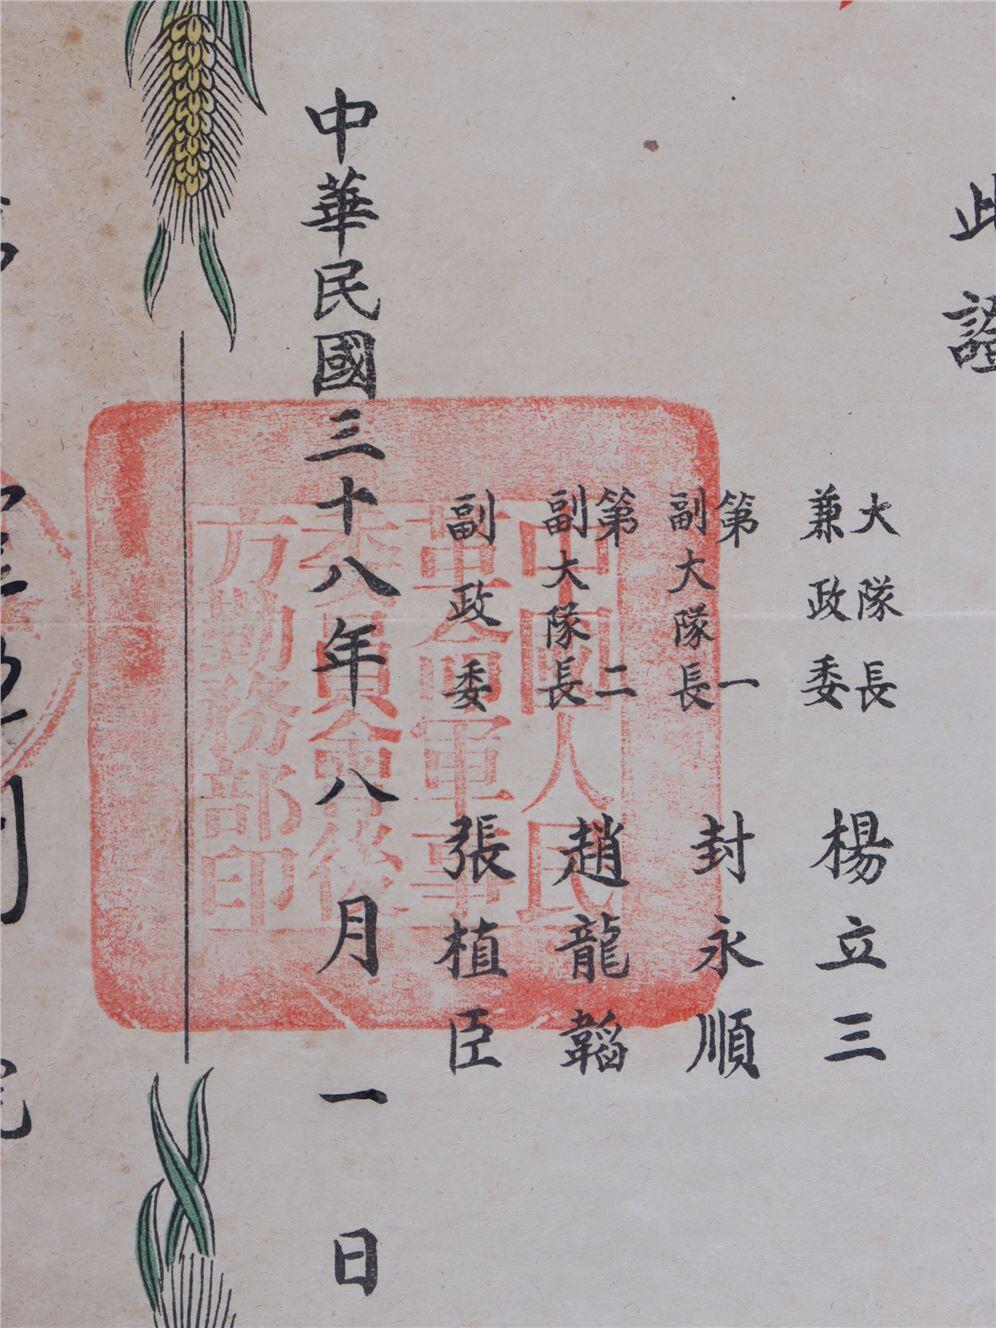 此證
大隊長
兼政委 楊立三
第一
副大隊長 封永順
第二
副大隊長 趙龍韜
副政委 張植臣
中華民國三十八年八月一日
中國人民
革命軍事
委員會後
方勤務部印